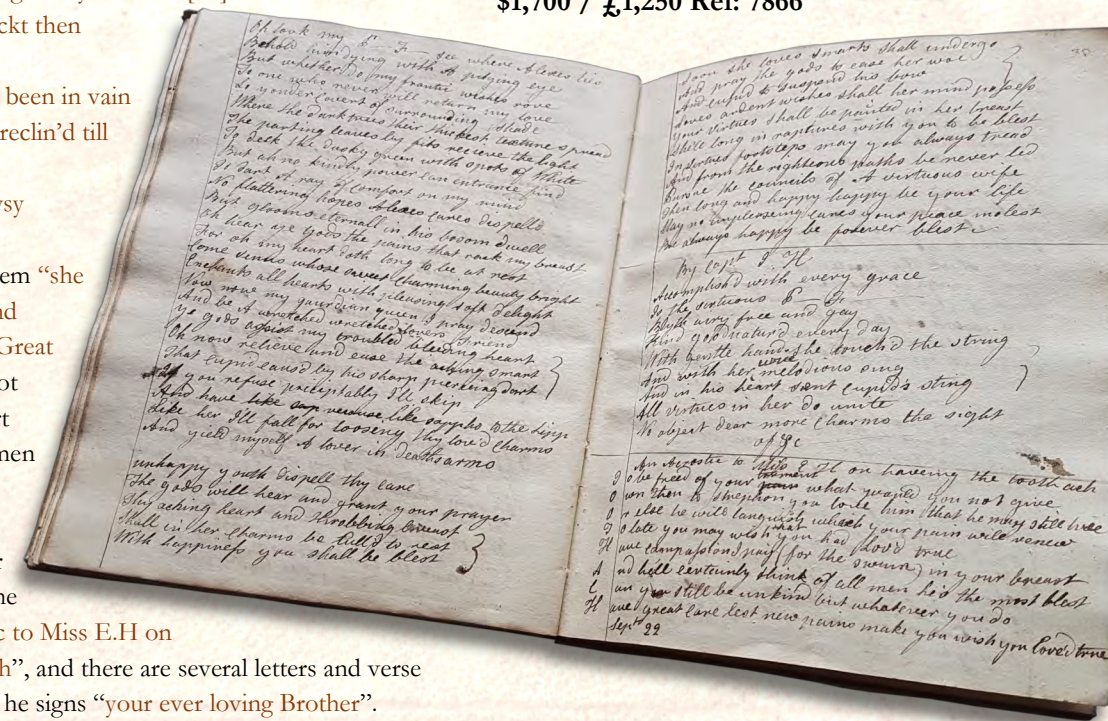 $1,700 / £1,250 Ref: 7866
ckt then
been in vain
reclin'd till
vsy
em "she
nd
Great
ot
rt
men
f
he
c to Miss E.H on
h", and there are several letters and verse
he signs "your ever loving Brother".
Oh look my B— F— see where Alexes lies
Behold him dying with A pitying eye
But whether do my frantic wishes rove
To one who never will return my love
In yonder covert of surrounding shade
Where the dark trees their thickest texture spread
The parting leaves by fits receive the light
To deck the dusky green with spots of White
But ah no kindly power can entrance find
T' dart A ray of comfort on my mind
No flattering hopes Alexes cares dispells
But glooms eternall in his bosom dwell
Oh hear ye gods the pains that rack my breast
For oh my heart doth long to be at rest
Come Venus whose sweet charming beauty bright
Enchants all hearts with pleasing soft delight
Now now my guardian queen I pray descend
And be A wretched wretched lovers friend
Ye gods assist my troubled bleeding heart
Oh now relieve and ease the aching smart
That Cupid caus'd by his sharp piercing dart
If you refuse precipitably I'll skip
And have like sappho to the
Like her I'll fall for looseing thy love'd Charms
And yield myself A lover in deaths arms
unhappy youth dispell thy care
The gods will hear and grant your prayer
Thy aching heart and throbbing breast
Shall in her Charms be lull'd to rest
With happiness you shall be blest
38
Soon she loves smarts shall undergo
And pray the gods to ease her woe
And cupid to suspend his bow
Loves ardent wishes shall her mind possess
Your virtues shall be painted in her breast
She'll long in raptures with you to be blest
In virtues footsteps may you always tread
And from the righteous paths be never led
Pursue the councils of A virtuous wife
Then long and happy happy be your life
May no unpleasing cares your peace molest
But always happy be forever blest
By Capt J H
Accomplish'd with every grace
Is the virtuous B— F—
Blyth airy free and gay
Kind goodnatur'd every day
With gentle hand she touch'd the string
And with her voice melodious sung
And in his heart sent Cupid's sting
All virtues in her do unite
No object dear more Charms the sight
of &c
An Acrostic to Miss E H on haveing the tooth ach
To be freed of your torment what would you not give
own then to Strephon you love him that he may still live
or else he will languish which your pain will renew
To late you may wish that you had love'd true
Have compassion I pray (for the swain) in your breast
And he'll certainly think of all men he's the most blest
Can you still be unkind but whatever you do
Have great care lest new pains make you wish you love'd true
Sept 22